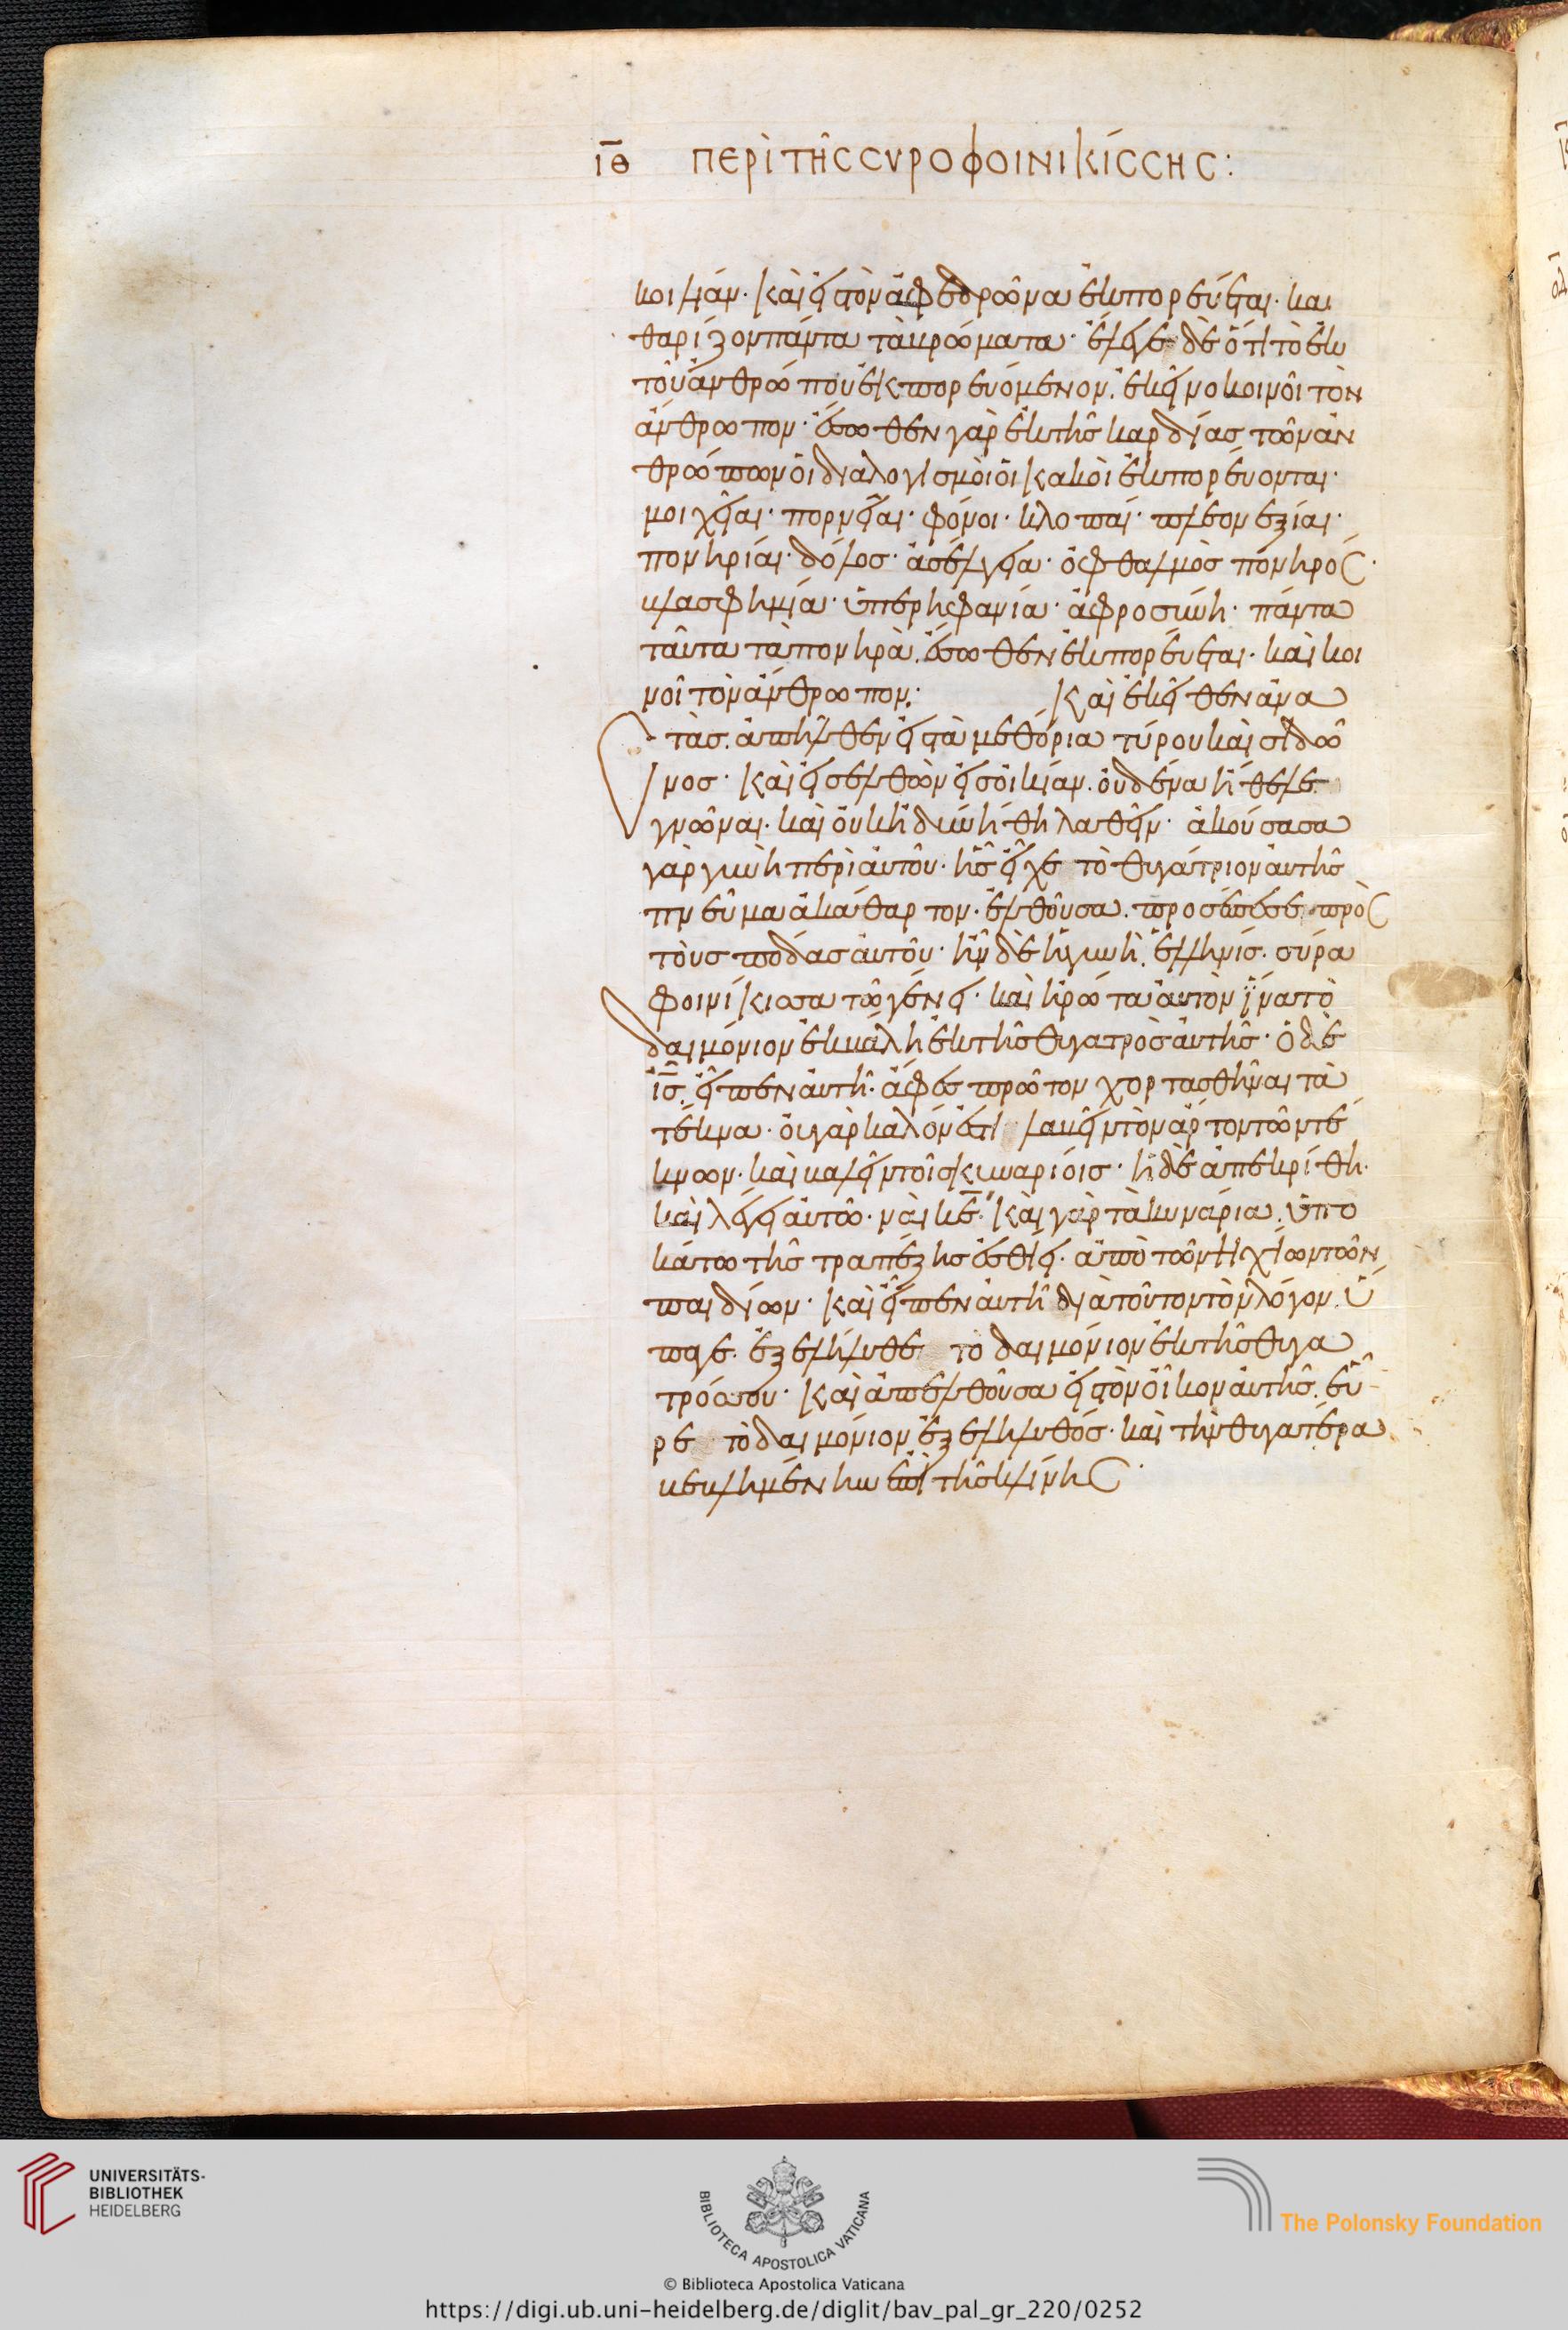 ιθ περὶ τῆς συροφοινικίσσης:
κοιλίαν· καὶ εἰς τὸν ἀφεδρῶνα ἐκπορεύεται· κα
θαρίζον πάντα τὰ βρώματα· ἔλεγε δὲ ὅτι τὸ ἐκ
τοῦ ἀνθρώπου ἐκπορευόμενον. ἐκεῖνο κοινοῖ τὸν
ἄνθρωπον· ἔσωθεν γὰρ ἐκ τῆς καρδίας τῶν ἀν
θρώπων οἱ διαλογισμοὶ οἱ κακοὶ ἐκπορεύονται·
μοιχεῖαι· πορνεῖαι· φόνοι· κλοπαί· πλεονεξίαι·
πονηρίαι· δόλος· ἀσέλγεια· ὀφθαλμὸς πονηρός·
βλασφημία· ὑπερηφανία· ἀφροσύνη· πάντα
ταῦτα τὰ πονηρὰ. ἔσωθεν ἐκπορεύεται· καὶ κοι
νοῖ τὸν ἄνθρωπον: Καὶ ἐκεῖθεν ἀνα
στὰς. ἀπῆλθεν εἰς τὰ μεθόρια τύρου καὶ σιδῶ
νος· καὶ εἰσελθὼν εἰς οἰκίαν. οὐδένα ἤθελε
γνῶναι· καὶ οὐκ ἠδυνήθη λαθεῖν· ἀκούσασα
γὰρ γυνὴ περὶ αὐτοῦ· ἧς εἶχε τὸ θυγάτριον αὐτῆς
πνεῦμα ἀκάθαρτον· ἐλθοῦσα. προσέπεσε πρὸς
τοὺς πόδας αὐτοῦ· ἦν δὲ ἡ γυνὴ. ἑλληνίς· σύρα
φοινίκισσα τῷ γένει· καὶ ἠρώτα αὐτὸν ἵνα τὸ
δαιμόνιον ἐκβάλη ἐκ τῆς θυγατρὸς αὐτῆς· ὁ δὲ
ις. εἶπεν αὐτῆ· ἄφες πρῶτον χορτασθῆναι τὰ
τέκνα· οὐ γὰρ καλόν ἐστι λαβεῖν τὸν ἄρτον τῶν τέ
κνων· καὶ βαλεῖν τοῖς κυναρίοις· ἡ δὲ ἀπεκρίθη·
καὶ λέγει αὐτῶ· ναὶ κε· καὶ γὰρ τὰ κυνάρια. ὑπο
κάτω τῆς τραπέζης ἐσθίει· ἀπὸ τῶν ψιχίων τῶν
παιδίων· καὶ εἶπεν αὐτῆ διὰ τοῦτον τὸν λόγον. ὕ
παγε· ἐξελήλυθε τὸ δαιμόνιον ἐκ τῆς θυγα
τρός σου· καὶ ἀπελθοῦσα εἰς τὸν οἶκον αὐτῆς. εὗ
ρε τὸ δαιμόνιον ἐξεληλυθός· καὶ τὴν θυγατέρα
βεβλημένην ἐπὶ τῆς κλίνης·
UNIVERSITÄTS-
BIBLIOTHEK
HEIDELBERG
BIBLIOTECA APOSTOLICA VATICANA
The Polonsky Foundation
© Biblioteca Apostolica Vaticana
https://digi.ub.uni-heidelberg.de/diglit/bav_pal_gr_220/0252